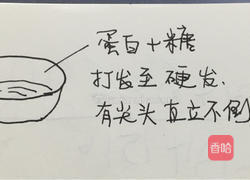 蛋白+糖
打发至硬发.
有尖头直立不倒
香哈